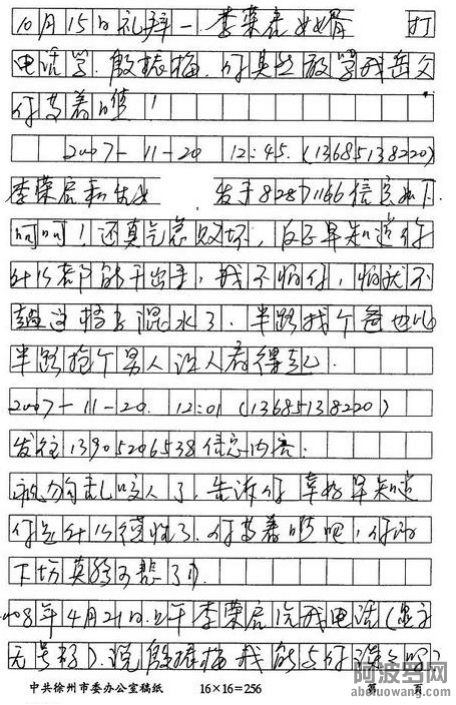 10月15日礼拜一 李荣启女婿 打
电话骂.殷振梅.你臭逼敢骂我岳父
你等着瞧!
2007-11-20 12:45.(13685138220)
李荣启和女 发于82871166信息如下.
呵呵!还真气急败坏,反正早知道你
什么都能干出来,我不怕你,怕就不
趟这撹子混水了.半路找个爸也比
半路抢个男人让人看得起.
2007-11-20. 12:01 (13685138220)
发往13905206538信息内容:
疯狗乱咬人了.告诉你 幸好早知道
你是什么德性了.你等着瞧吧,你的
下场莫过可悲了).
08年4月21日.上午李荣启说我电话(显示
无号码).说殷振梅我能与你
中共徐州市委办公室稿纸 16×16=256 第 页
阿波罗网
aboluowang.com